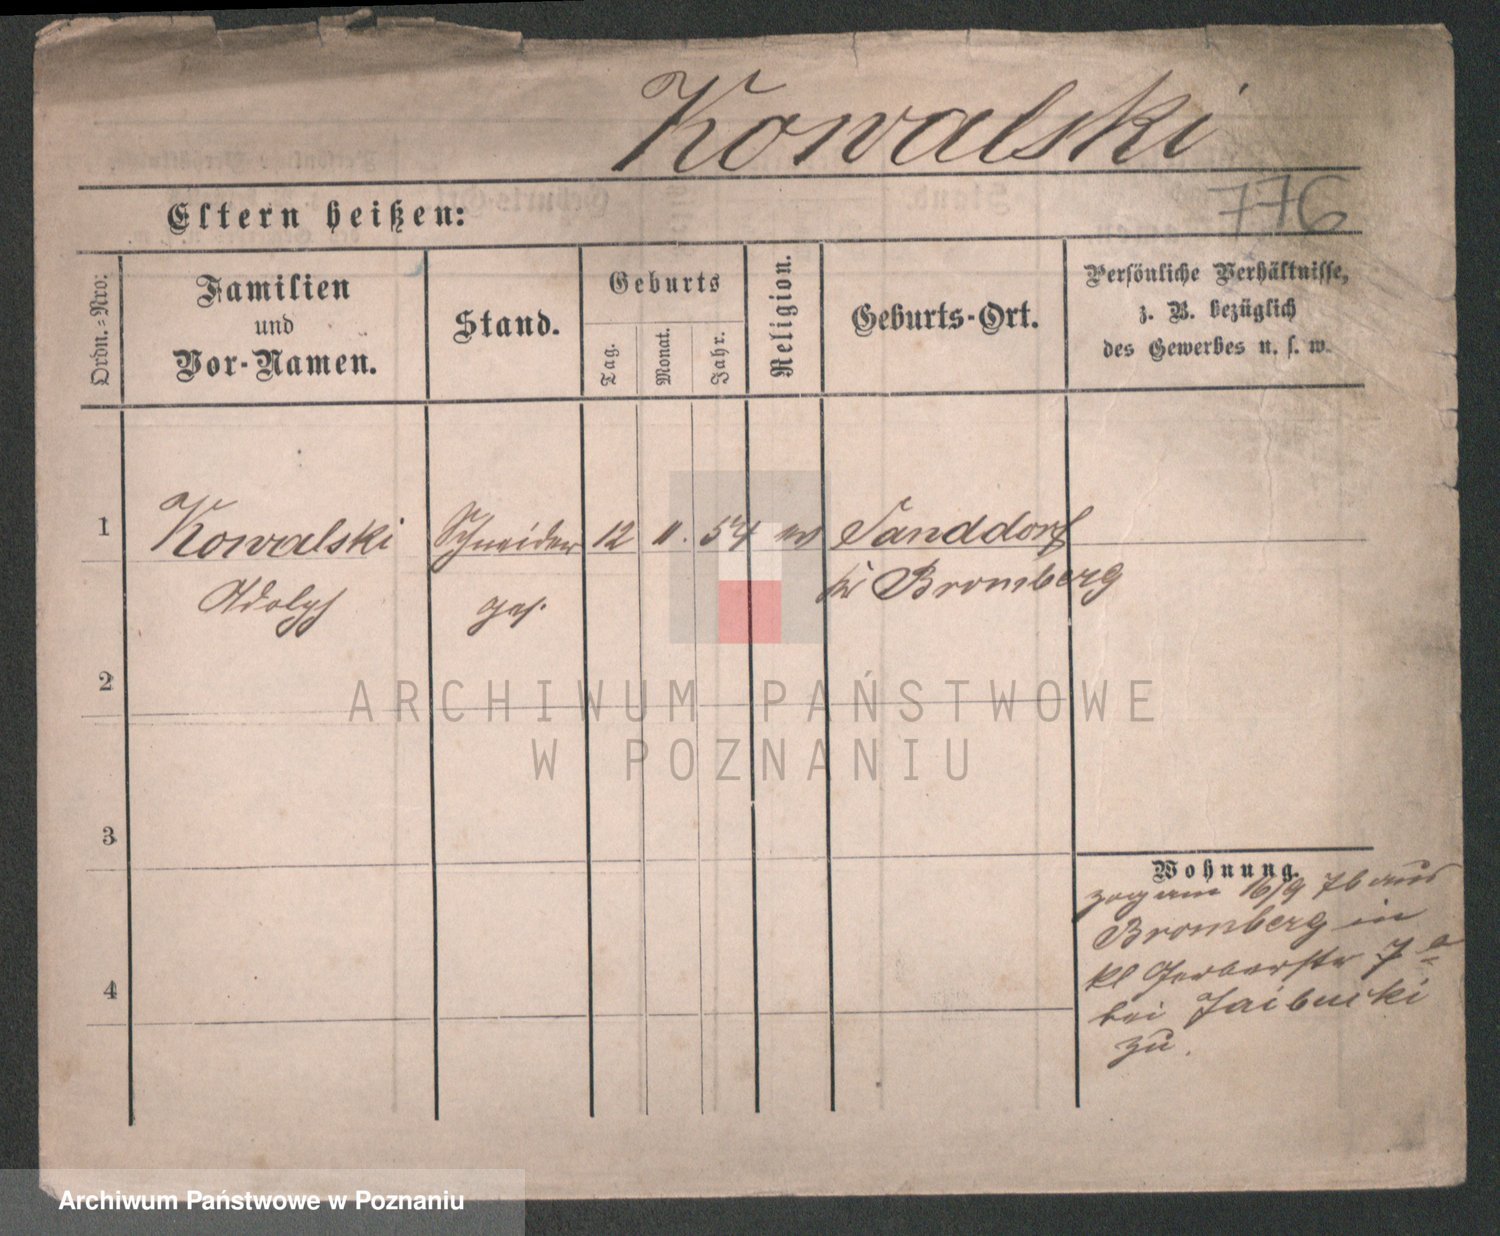 Kowalski
776
Eltern heißen:
Ordn.=Nro:
Familien
und
Vor-Namen.
Stand.
Geburts
Tag.
Monat.
Jahr.
Religion.
Geburts-Ort.
Persönliche Verhältnisse,
z. B. bezüglich
des Gewerbes u. s. w.
1
Kowalski Schneider 12 11. 54 ev Sanddorf
Adolph ges. Kr Bromberg
2
3
4
Wohnung.
zog am 16/9 76 aus
Bromberg in
kl Gerberstr 7a
bei
zu.
ARCHIWUM PAŃSTWOWE
W POZNANIU
Archiwum Państwowe w Poznaniu